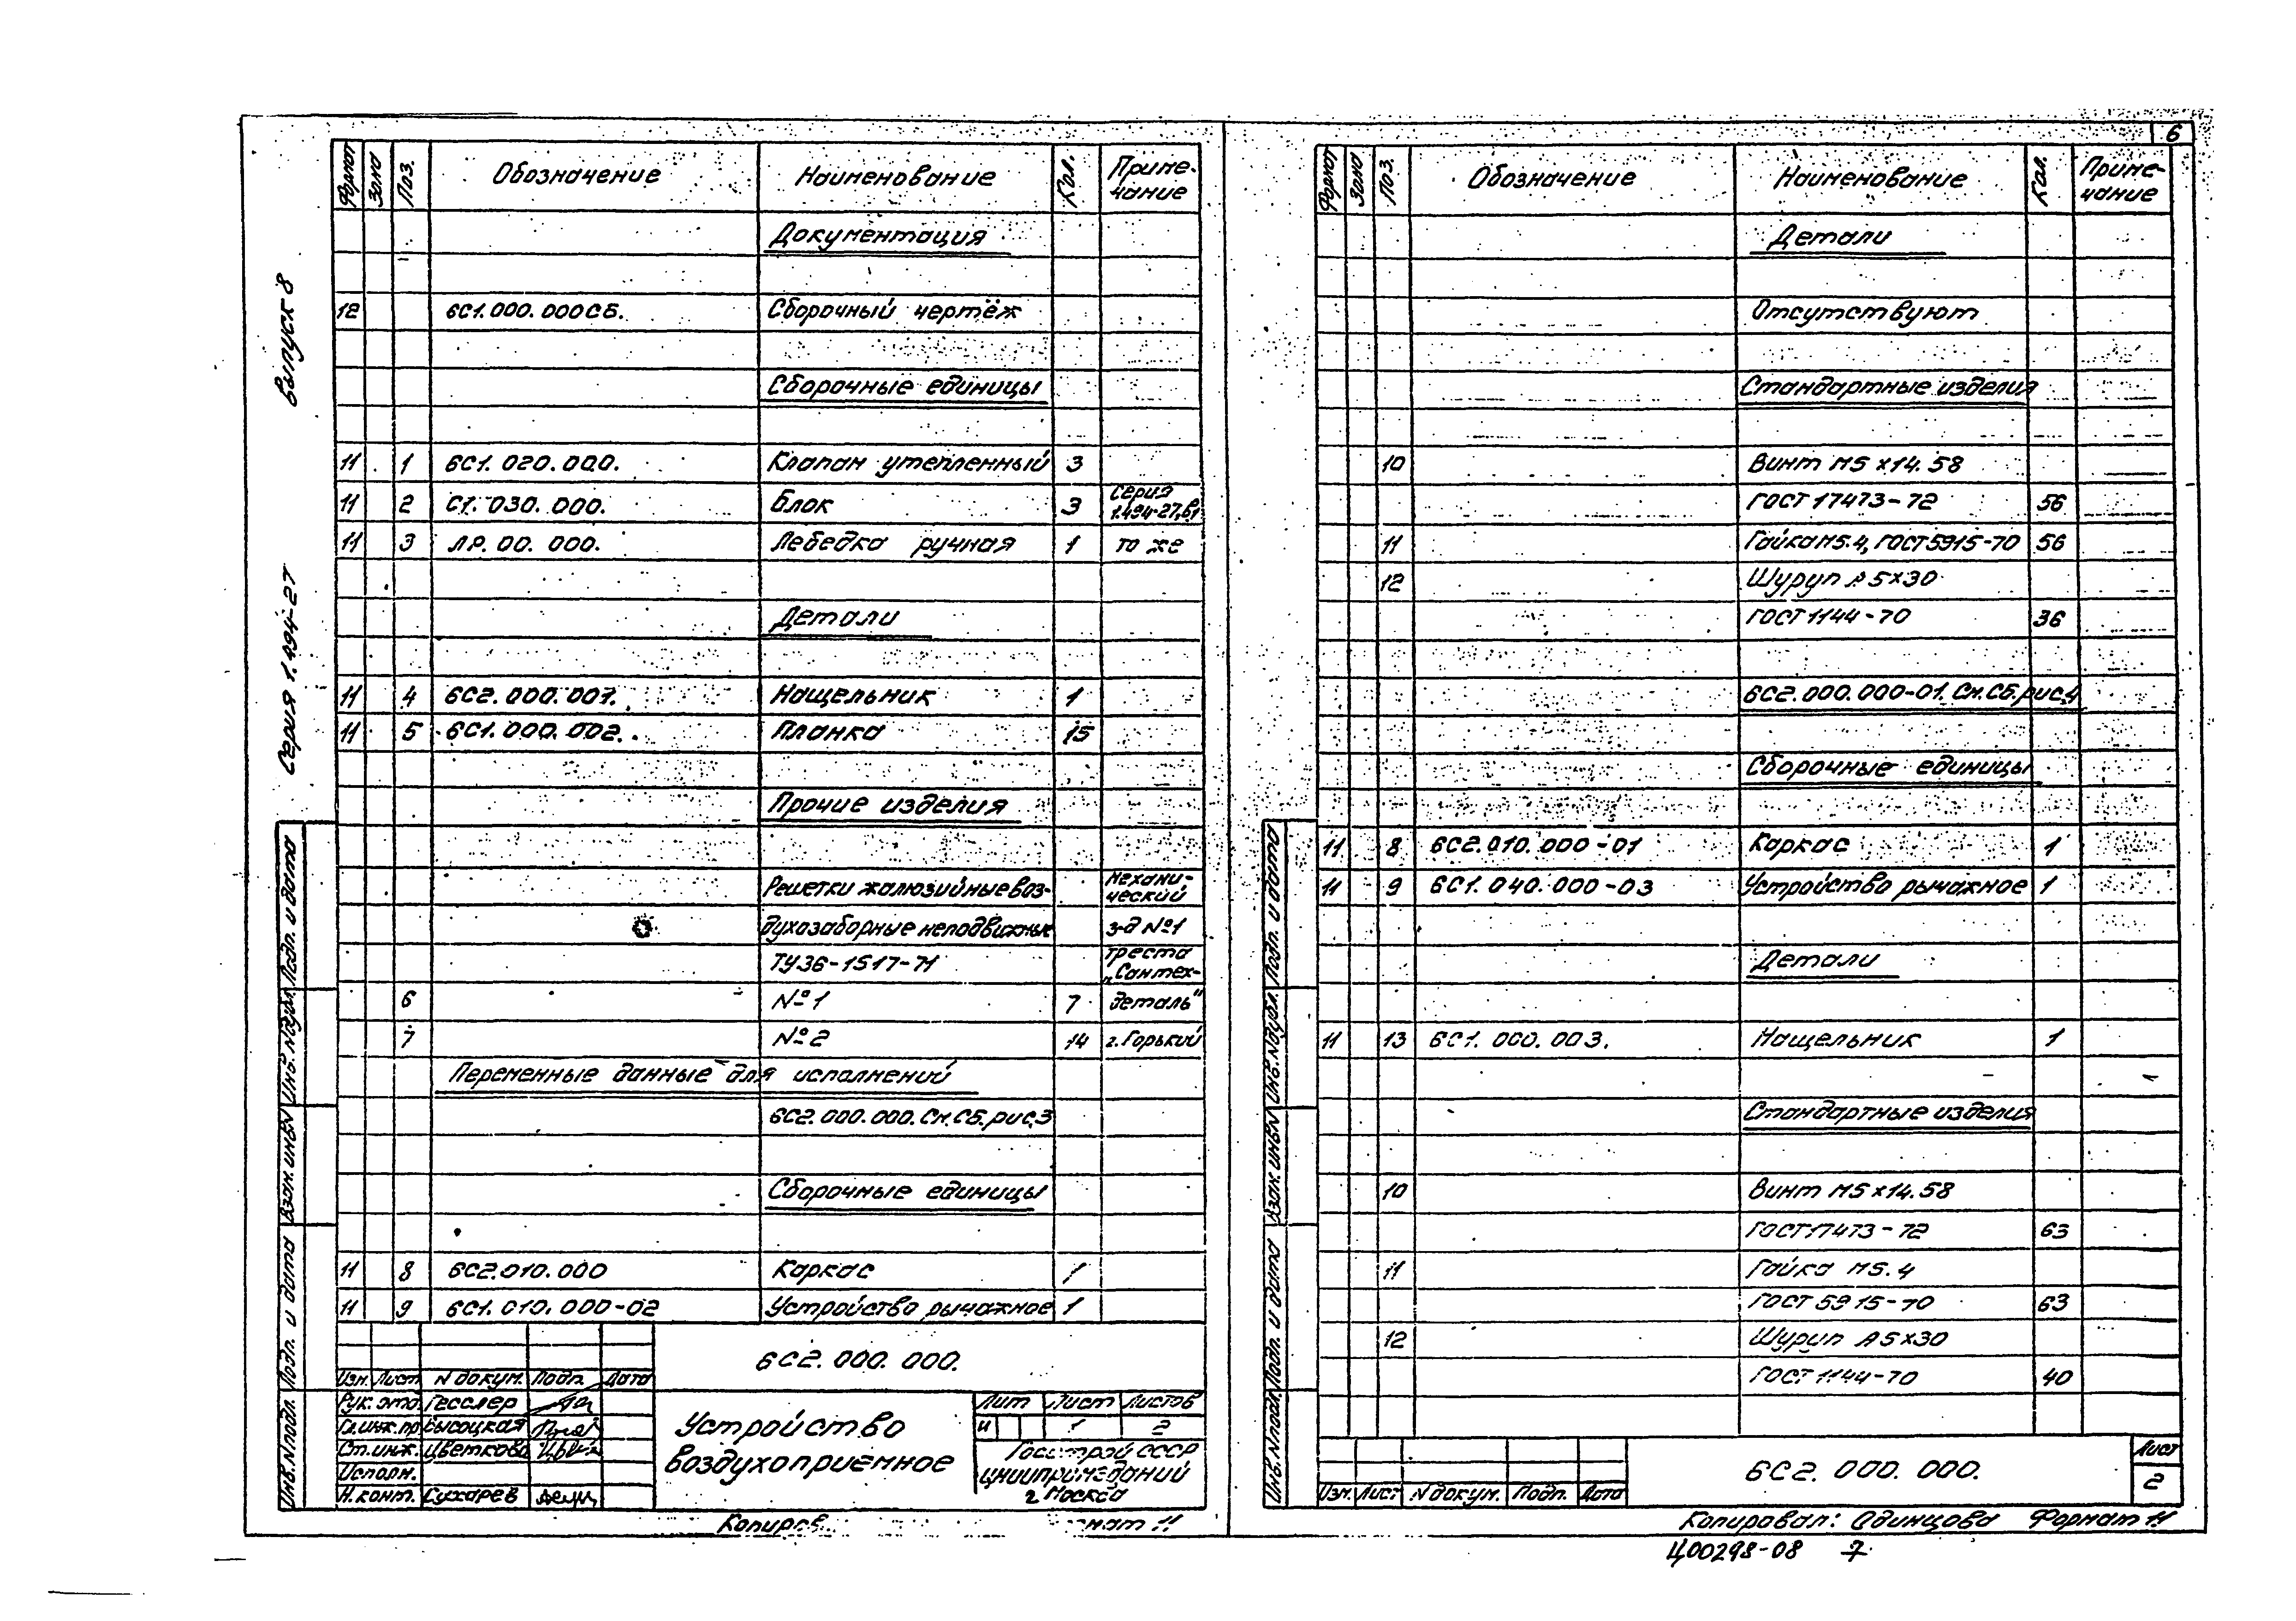 6
Выпуск 8
Серия 1.494-27
Формат Зона Поз. Обозначение Наименование Кол. Примечание
Документация
12 6С1.000.000СБ. Сборочный чертёж
Сборочные единицы
11 1 6С1.020.000. Клапан утепленный 3
11 2 С1.030.000. Блок 3 Серия 1.494-27, в.1
11 3 ЛР.00.000. Лебедка ручная 1 то же
Детали
11 4 6С2.000.001. Нащельник 1
11 5 6С1.000.002. Планка 15
Прочие изделия
Решетки жалюзийные воз- механи-ческий
духозаборные неподвижные з-д №1
ТУ36-1517-71 треста „Сантех-
6 №1 7 деталь"
7 №2 14 г. Горький
Переменные данные для исполнений
6С2.000.000. См. СБ. рис. 3
Сборочные единицы
11 8 6С2.010.000 Каркас 1
11 9 6С1.010.000-02 Устройство рычажное 1
6С2.000.000.
Изм. Лист N докум. Подп. Дата
Рук. отд. Гесслер
Гл.инж.пр. Высоцкая
Ст.инж. Цветкова
Исполн.
Н.конт. Сухарев
Устройство
воздухоприемное
Лит Лист Листов
И 1 2
Госстрой СССР
ЦНИИпромзданий
г Москва
Инв.N подл. Подп. и дата Взам. инв.N Инв.N дубл. Подп. и дата
Формат Зона Поз. Обозначение Наименование Кол. Примечание
Детали
Отсутствуют
Стандартные изделия
10 Винт М5х14.58
ГОСТ 17473-72 56
11 Гайка М5.4, ГОСТ 5915-70 56
12 Шуруп А5х30
ГОСТ 1144-70 36
6С2.000.000-01. См. СБ. рис. 4
Сборочные единицы
11 8 6С2.010.000-01 Каркас 1
11 9 6С1.040.000-03 Устройство рычажное 1
Детали
11 13 6С1.000.003. Нащельник 1
Стандартные изделия
10 Винт М5х14.58
ГОСТ 17473-72 63
11 Гайка М5.4
ГОСТ 5915-70 63
12 Шуруп А5х30
ГОСТ 1144-70 40
Изм. Лист N докум. Подп. Дата
6С2.000.000.
Лист
2
Инв.N подл. Подп. и дата Взам. инв.N Инв.N дубл. Подп. и дата
Копировал: Одинцова Формат 11
Ц00298-08 7